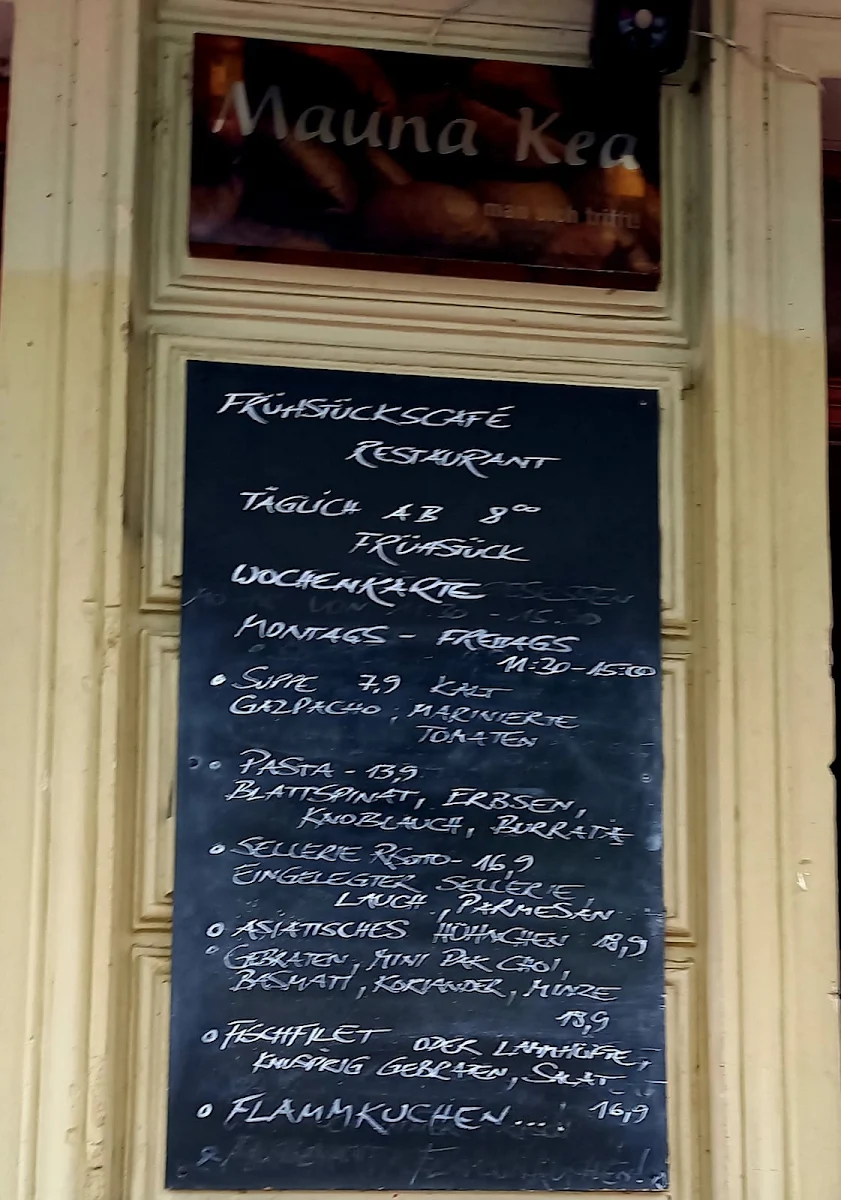 Mauna Kea
man sich trifft!
FRÜHSTÜCKSCAFÉ
RESTAURANT
TÄGLICH AB 8⁰⁰
FRÜHSTÜCK
WOCHENKARTE
MONTAGS - FREITAGS
11:30-15:00
SUPPE 7,9 KALT
GAZPACHO, MARINIERTE
TOMATEN
PASTA - 13,9
BLATTSPINAT, ERBSEN,
KNOBLAUCH, BURRATA
SELLERIE RISOTO - 16,9
EINGELEGTER SELLERIE,
LAUCH, PARMESAN
ASIATISCHES HÜHNCHEN 18,9
GEBRATEN, MINI PAK CHOI,
BASMATI, KORIANDER, MINZE
18,9
FISCHFILET ODER LAMMHÜFTE,
KNUSPRIG GEBRATEN, SALAT
FLAMMKUCHEN...! 16,9